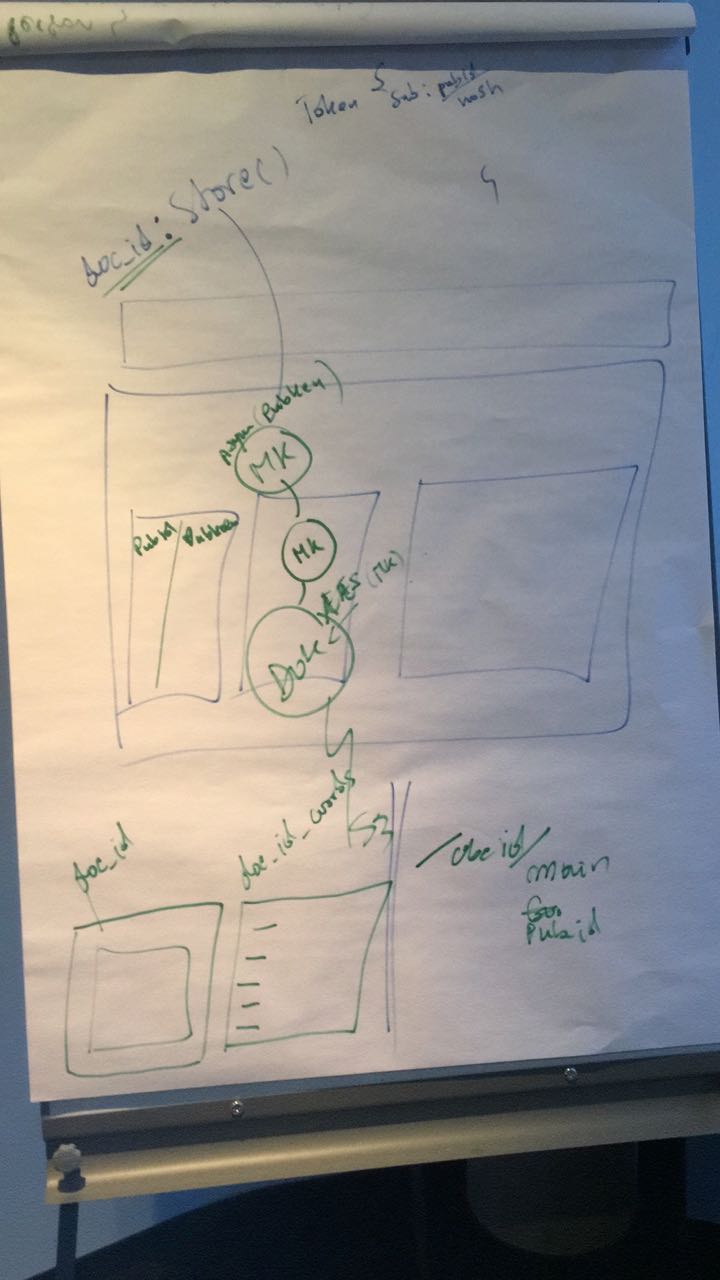 Token { Sub: pubid/
hash
doc_id: Store()
(Pubkey)
MK
Pubid/Pubkey
MK
AES (MK)
Doc
doc_id
doc_id_words
S3
/doc id/
main
Pubid